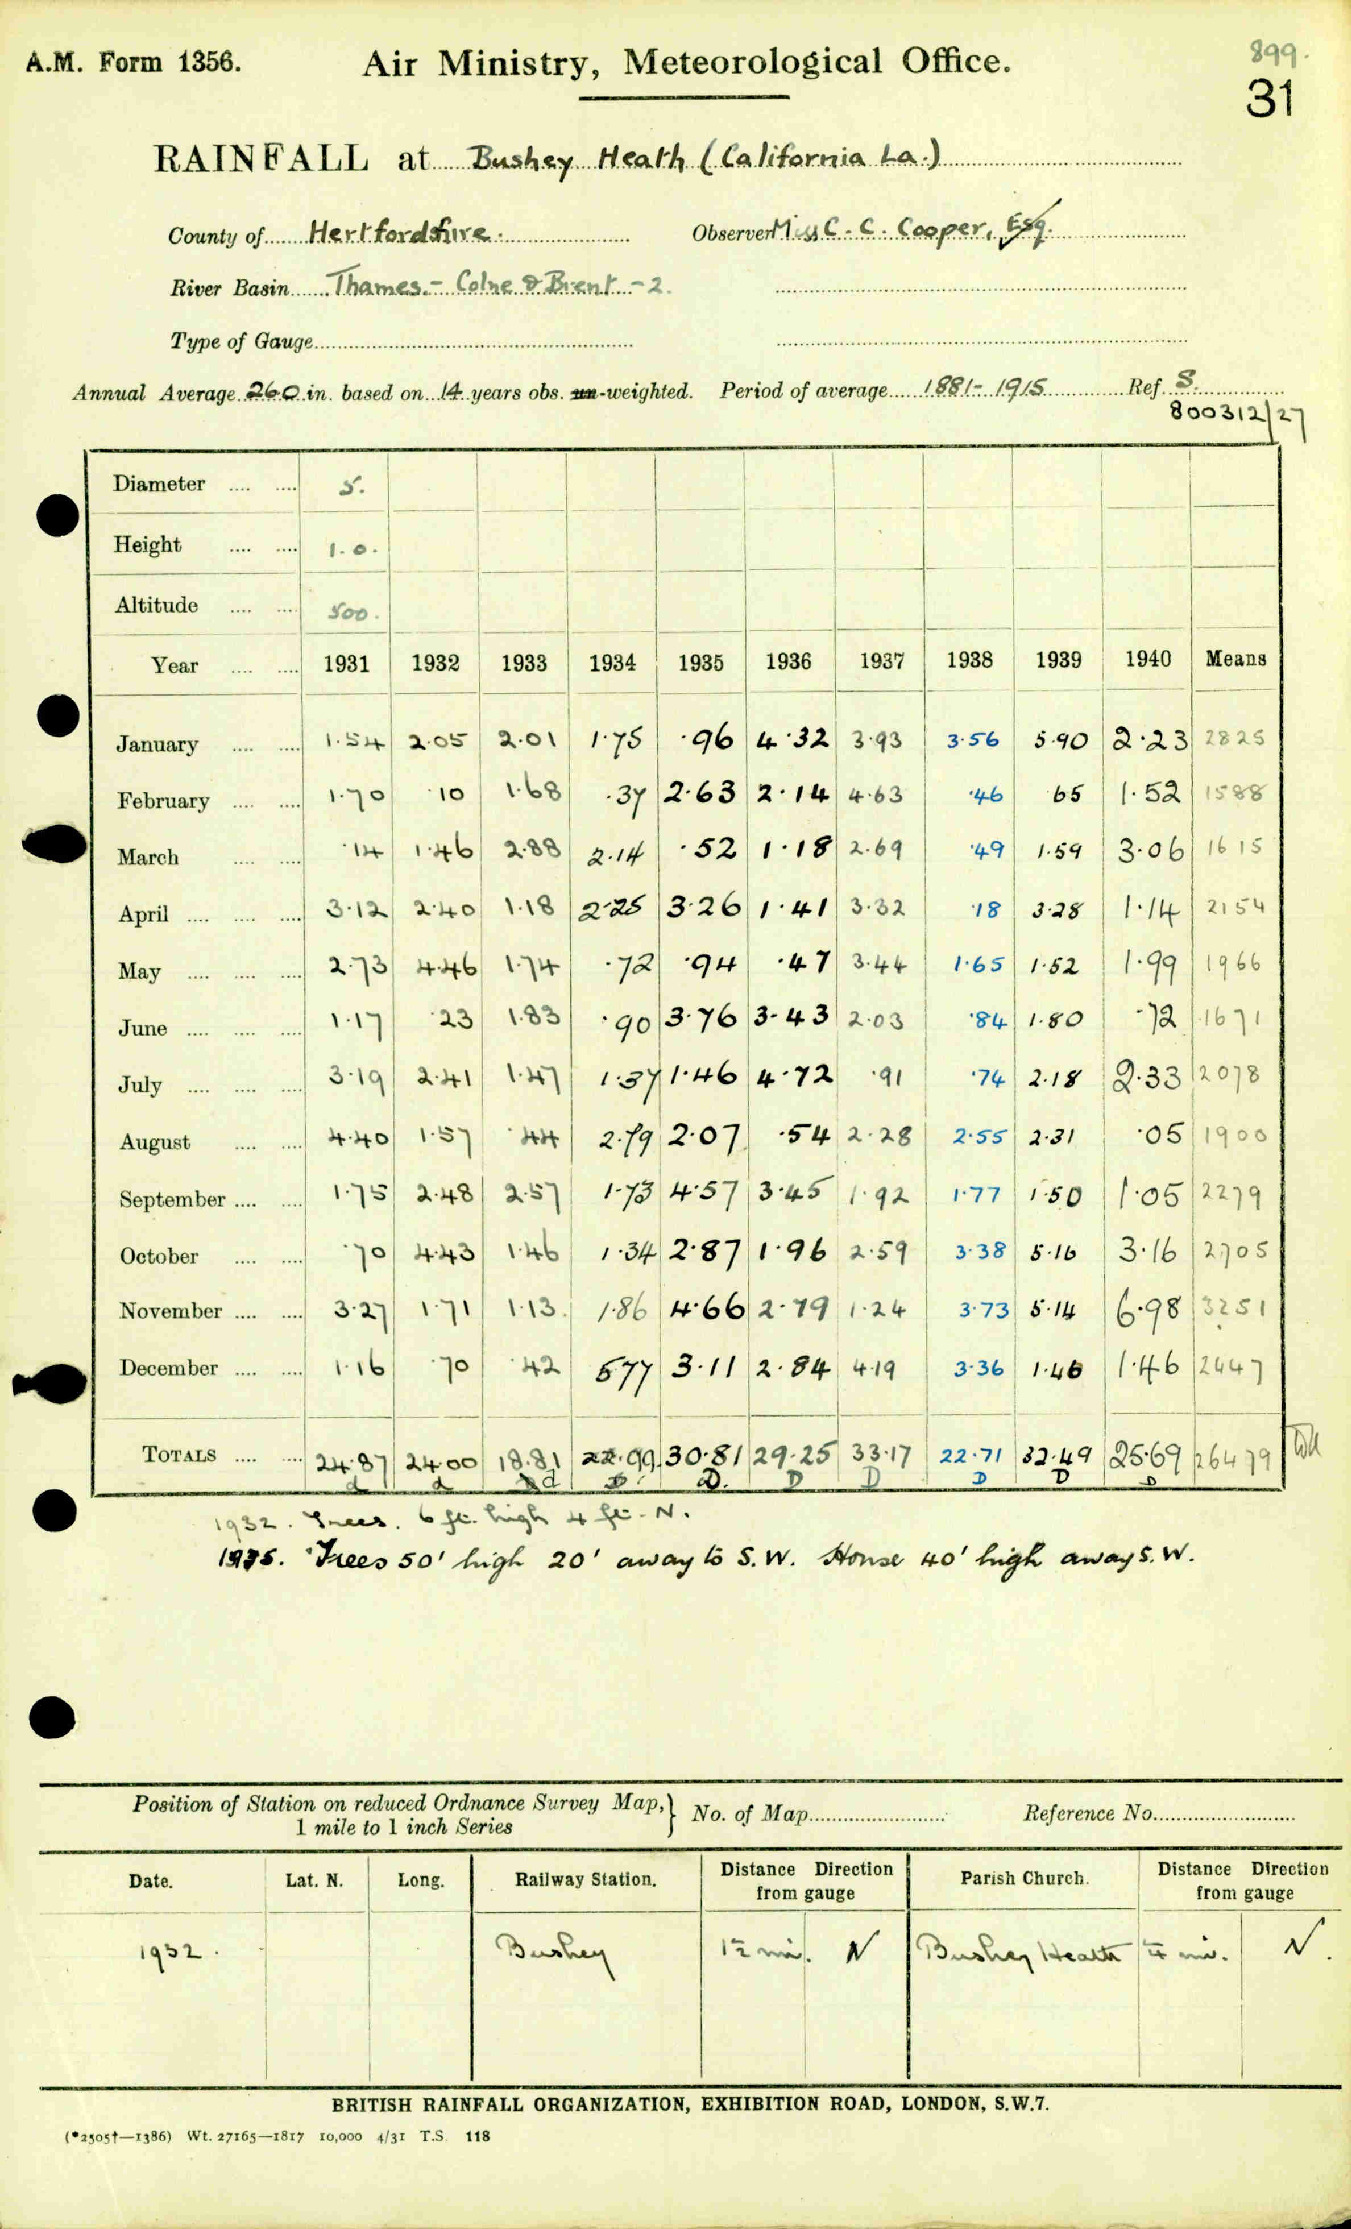 A.M. Form 1356.
Air Ministry, Meteorological Office.
899.
31
RAINFALL at Bushey Heath (California La.)
County of Hertfordshire. Observer Miss C. C. Cooper, Esq.
River Basin Thames - Colne & Brent - 2.
Type of Gauge
Annual Average 26.0 in. based on 14 years obs. un-weighted. Period of average 1881-1915 Ref. S.
800312/27
Diameter .... .... 5.
Height .... .... 1.0.
Altitude .... .... 500.
Year .... .... 1931 1932 1933 1934 1935 1936 1937 1938 1939 1940 Means
January .... .... 1.54 2.05 2.01 1.75 .96 4.32 3.93 3.56 5.90 2.23 2825
February .... .... 1.70 .10 1.68 .37 2.63 2.14 4.63 .46 .65 1.52 1588
March .... .... .14 1.46 2.88 2.14 .52 1.18 2.69 .49 1.59 3.06 1615
April .... .... .... 3.12 2.40 1.18 2.25 3.26 1.41 3.32 .18 3.28 1.14 2154
May .... .... .... 2.73 4.46 1.74 .72 .94 .47 3.44 1.65 1.52 1.99 1966
June .... .... .... 1.17 .23 1.83 .90 3.76 3.43 2.03 .84 1.80 .72 1671
July .... .... .... 3.19 2.41 1.47 1.37 1.46 4.72 .91 .74 2.18 2.33 2078
August .... .... 4.40 1.57 .44 2.79 2.07 .54 2.28 2.55 2.31 .05 1900
September .... .... 1.75 2.48 2.57 1.73 4.57 3.45 1.92 1.77 1.50 1.05 2279
October .... .... .70 4.43 1.46 1.34 2.87 1.96 2.59 3.38 5.16 3.16 2705
November .... .... 3.27 1.71 1.13 1.86 4.66 2.79 1.24 3.73 5.14 6.98 3251
December .... .... 1.16 .70 .42 5.77 3.11 2.84 4.19 3.36 1.46 1.46 2447
TOTALS .... .... 24.87 24.00 18.81 22.99 30.81 29.25 33.17 22.71 32.49 25.69 26479
d d d D D. D D D D D
1932. Trees. 6 ft. high 4 ft. N.
1935. Trees 50' high 20' away to S.W. House 40' high away S.W.
Position of Station on reduced Ordnance Survey Map, 1 mile to 1 inch Series } No. of Map Reference No.
Date. Lat. N. Long. Railway Station. Distance Direction from gauge Parish Church. Distance Direction from gauge
1932. Bushey 1½ mi. N Bushey Heath ¼ mi. N.
BRITISH RAINFALL ORGANIZATION, EXHIBITION ROAD, LONDON, S.W.7.
(*2505†—1386) Wt. 27165—1817 10,000 4/31 T.S. 118